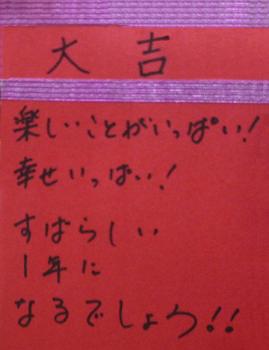 大吉
楽しいことがいっぱい!
幸せいっぱい!
すばらしい
1年に
なるでしょう!!